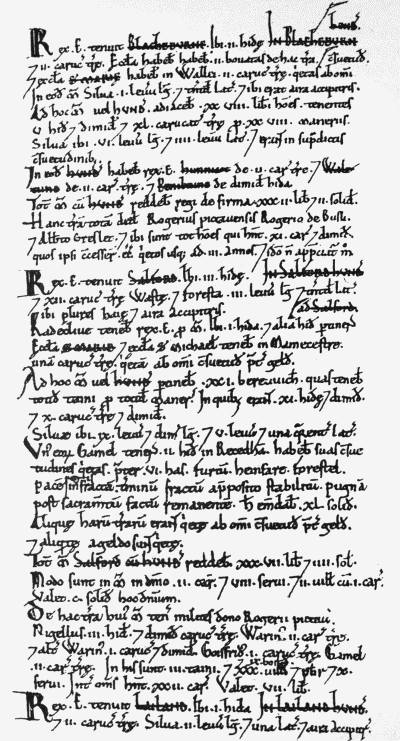 In Blacheburn hund.
Rex. E. tenuit Blacheburne. Ibi. ii. hidę
7 ii. caruc̄ tr̄ę. Eccl̄a habeb̄ .ii. bouatas de hac tr̄a.
7 eccl̄a S MARIE habeb̄ in Wallei .ii. caruc̄ tr̄ę. quietas ab om̄i
In eod̄ m̄ Silua .i. leuu̅ lḡ. 7 tn̄td̄ lat̄. 7 ibi erat aira accipitris.
Ad hoc m̄ uel HUND. adiaceb̄ .xx.viii. lib̄i hōes. tenentes
v hid̄ 7 dimid̄ 7 xl. carucat̄ tr̄ę p̄ .xx.viii. maneriis.
Silua ibi .vi. leuu̅ lḡ. 7 .iiii. leuu̅ lat̄. 7 erant in sup̄dictis
c̄suetudinib;
In eod̄ HUND habeb̄ rex. E. Hunnicot de .ii. car̄ tr̄ę. 7 Wale-
tune de .ii. car̄ tr̄ę. 7 Peniltune de dimid̄ hida.
Tot̄ m̄ cū HUND reddeb̄ regi de firma .xxx.ii. lib̄ 7 ii. solid̄.
Hanc tr̄a totā ded̄ Rogerius pictauensis Rogerio de Busli.
7 Alb̄to Greslet. 7 ibi sunt tot hōes qui hn̄t .xi. car̄ 7 dimid̄.
quos ipsi c̄cesser̄ eē q̇etos usq; ad .iii. annos. 7 ido n̄ app̄ciat̄ m̊
Rex. E. tenuit Salford. Ibi .iii. hidę. In Salford hund.
7 xii. caruc̄ tr̄ę Wastę. 7 foresta .iii. leuu̅ lḡ. 7 tn̄td̄ lat̄.
7 ibi plures haię 7 aira accipitris. ad Salford.
Radeclive teneb̄ rex. E. p̄ m̄. Ibi .i. hida. 7 alia hid̄ p̄tinens
Eccl̄a S MARIE 7 eccl̄a S Michael̄ teneb̄ in Mamecestre.
unā caruc̄ tr̄ę. q̇etā ab om̄i c̄suetud̄ p̄t̄ gelđ.
Ad hoc m̄ uel HUND p̄tineb̄ .xxi. bereuuich. quas teneb̄
totid̄ taini p̄ totid̄ maner̄. In quib; erant .xi. hidę 7 dimid̄.
7 x. caruc̄ tr̄ę 7 dimid̄.
Siluę ibi .ix. leuu̅ 7 dim̄ lḡ. 7 v. leuu̅ 7 una q̄rent̄ lat̄.
Vn̄ eoȝ Gamel tenens .ii. hid̄ in Recedhā. habeb̄ suas c̄sue
tudines q̇etas. p̄ter .vi. has. furtū. heinfare. forestel.
pacē infractā. t̄minū fractū apposito stabilitū. pugnā
post sacram̄tum factū remanentē. H emdab̄ .xl. solid̄.
Aliquę harū tr̄arū erant q̇etę ab om̄i c̄suetud̄ p̄t̄ gelđ.
7 aliquę a geldo sunt q̇etę.
Tot̄ m̄ Salford cū HUND reddeb̄ .xxx.vii. lib̄ 7 .iiii. sol̄.
Modo sunt in m̄ in dn̄io .ii. car̄. 7 viii. serui. 7 ii. uill̄ cū .i. car̄.
Valet .c. solid̄ hoc dn̄ium.
De hac tr̄a hui m̄ ten̄ milites dono Rogerii pictau̅.
Nigellus .iii. hid̄. 7 dimid̄ caruc̄ tr̄ę. Warin̄ .ii. car̄ tr̄ę.
7 alt̄ Warin̄ .i. caruc̄ 7 dimid̄. Goisfrid̄ .i. caruc̄ tr̄ę. Gamel
.ii. car̄ tr̄ę. In his sunt .iii. taini. 7 xxx. uilli. 7 ix. bord̄ 7 pb̄r 7 x.
serui. Int̄ om̄s hn̄t .xxii. car̄. Valet .vii. lib̄.
Rex. E. tenuit Lailand. Ibi .i. hida In Lailand hund.
7 ii. caruc̄ tr̄ę. Silua .ii. leuu̅ lḡ. 7 una lat̄. 7 aira accipitr̄.